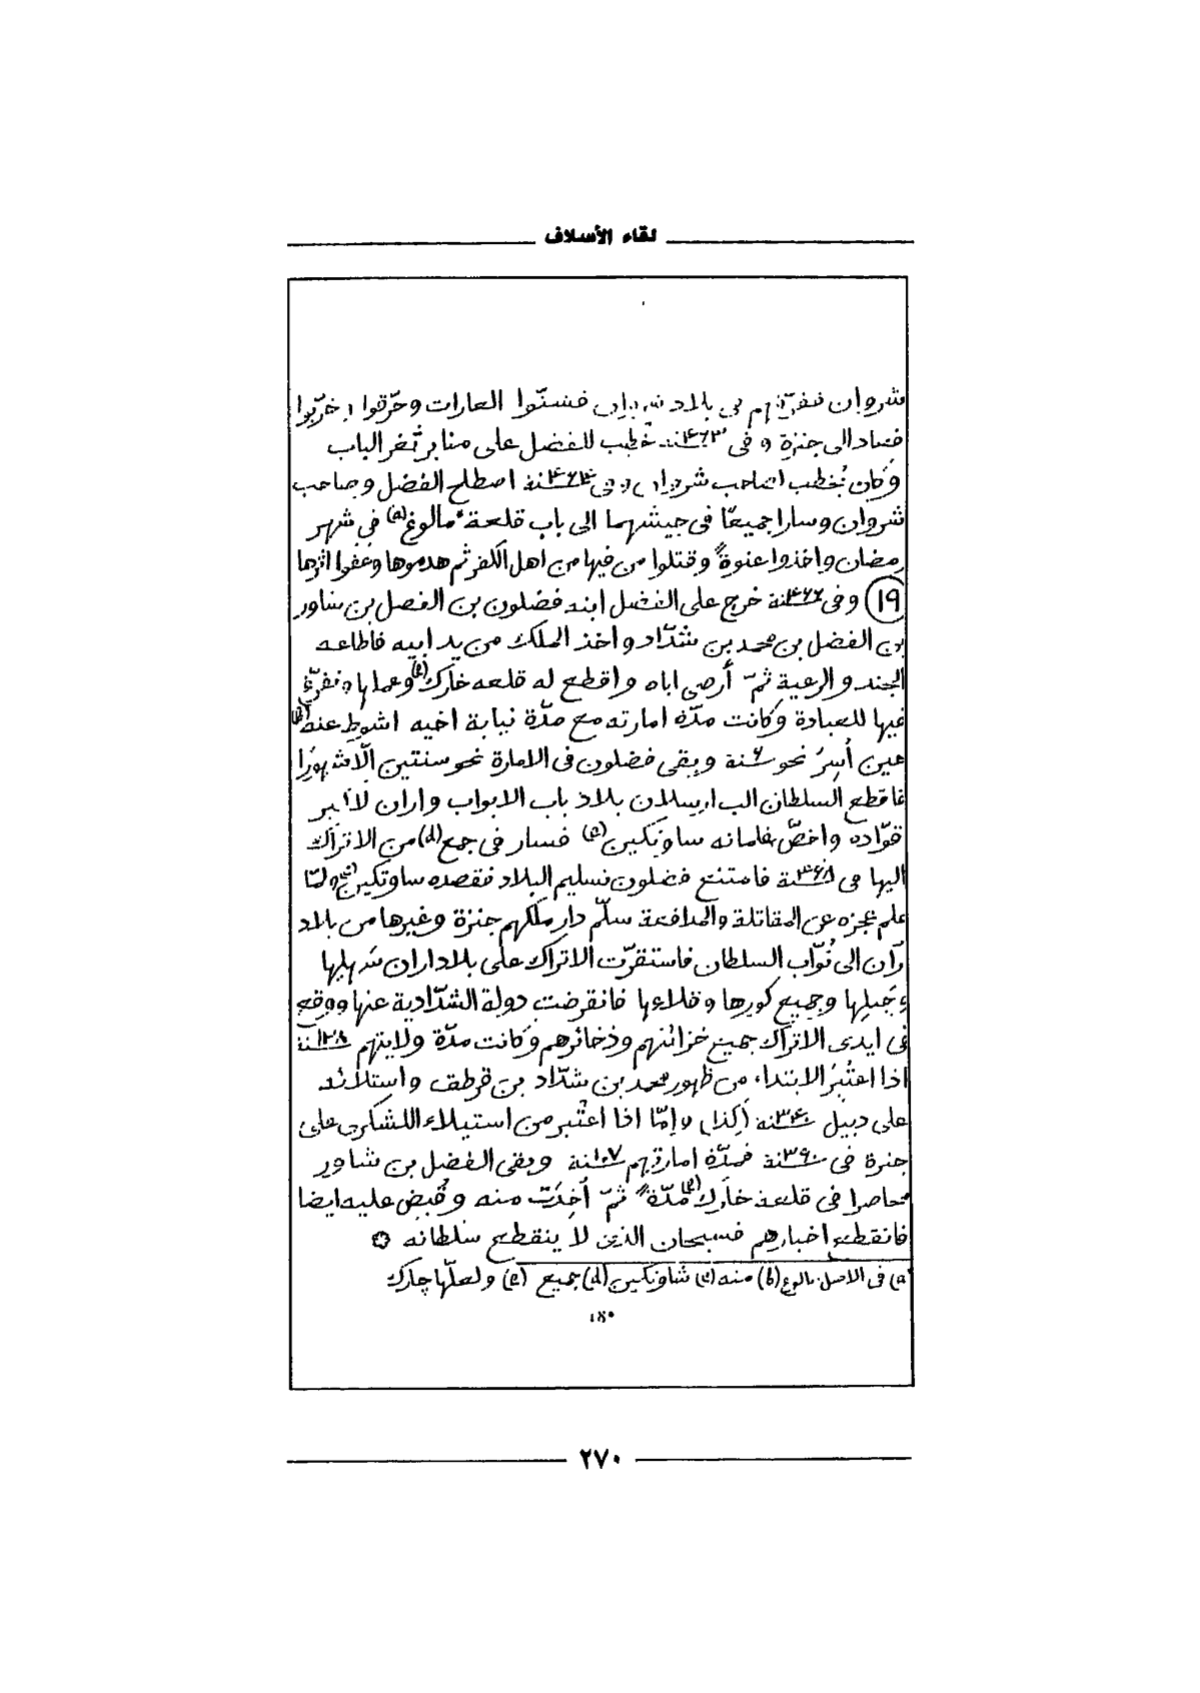 لقاء الأسلاف
شروان ففرّقهم فى بلاد شروان فشنّوا الغارات وحرّقوا وخرّبوا
فعاد الى جنزة و فى سنة ۴۶۳ خُطب للفضل على منابر ثغر الباب
وكان يُخطب لصاحب شروان وفى سنة اصطلح الفضل وصاحب
شروان وسارا جميعًا فى جيشهما الى باب قلعة مالوغ (a) فى شهر
رمضان واخذوا عنوةً وقتلوا من فيها من اهل الكفر ثم هدموها وعفوا اثرها
(١٩) وفى سنة ۴۶۶ خرج على الفضل ابنه فضلون بن الفضل بن شاور
بن الفضل بن محمد بن شدّاد واخذ الملك من يد ابيه فاطاعه
الجند و الرعية ثمّ أرضى اباه واقطع له قلعة خارك (e) وعملها وتفرّغ
فيها للعبادة وكانت مدّة امارته مع مدّة نيابة اخيه اشوط عنه (b)
حين أُسِرُ نحو سنة وبقى فضلون فى الامارة نحو سنتين الّا شهورًا
فاقطع السلطان الب ارسلان بلاد باب الابواب واران لأكبر
قوّاده واخصّ غلمانه ساوتكين (c) فسار فى جمع (d) من الاتراك
اليها فى سنة ۴۶۸ فامتنع فضلون تسليم البلاد فقصده ساوتكين (c) ولمّا
علم عجزه عن المقاتلة والمدافعة سلّم دار ملكهم جنزة وغيرها من بلاد
رّان الى نُوّاب السلطان فاستقرّت الاتراك على بلاد اران سهلها
وجَبلِها وجميع كورها وقلاعها فانقرضت دولة الشدّادية عنها ووقع
فى ايدى الاتراك جميع خزائنهم وذخائرهم وكانت مدّة ولايتهم سنة ١٢٨
اذا اعتُبِرَ الابتداء من ظهور محمد بن شدّاد بن قرطق واستلائه
على دبيل سنة ٣٤٠ [كذا] وامّا اذا اعتُبر من استيلاء اللشكرى على
جنزة فى سنة ٣٦٠ فمدّة امارتهم سنة ١٠٧ وبقى الفضل بن شاور
محاصرا فى قلعة خارك (e) مدّةً ثمّ أُخِذَت منه وقُبض عليه ايضا
فانقطع اخبارهم فسبحان الذى لا ينقطع سلطانه
(a) فى الاصل: مالوع (b) منه (c) شاوتكين (d) جميع (e) ولعلّها چارك
٢٧٠